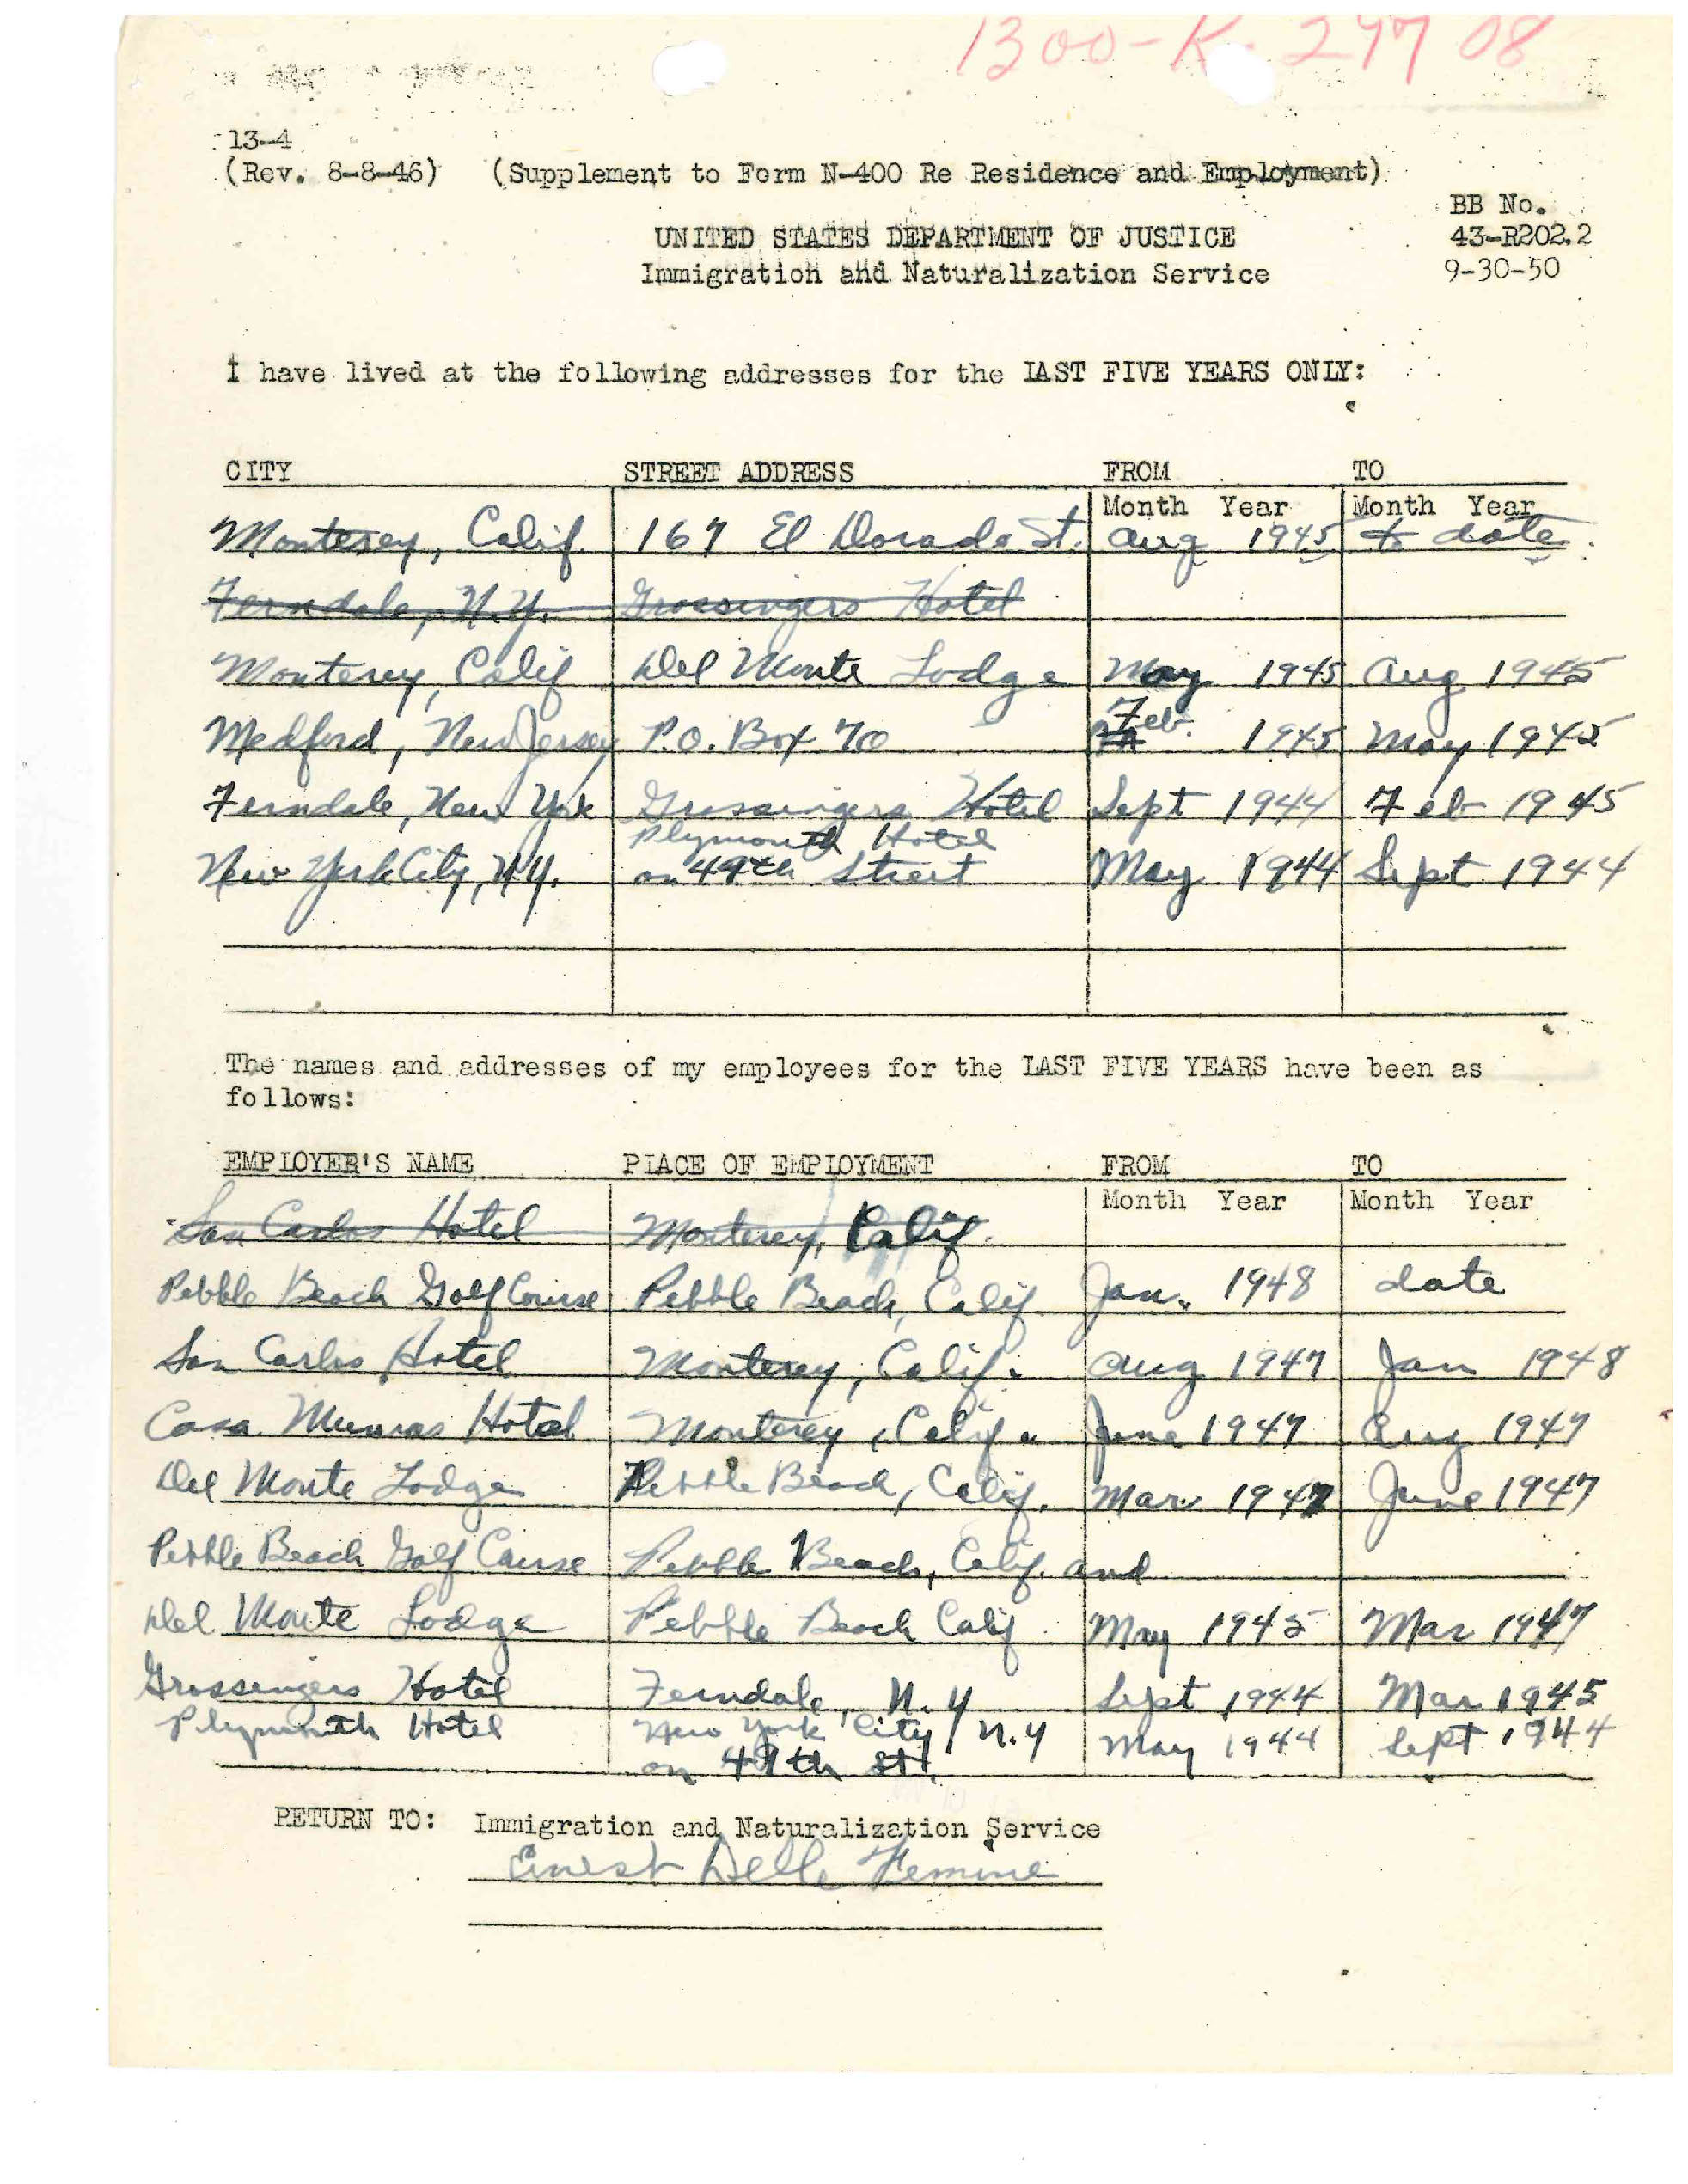 1300-K-29708
13-4
(Rev. 8-8-46) (Supplement to Form N-400 Re Residence and Employment)
BB No.
UNITED STATES DEPARTMENT OF JUSTICE 43-R202.2
Immigration and Naturalization Service 9-30-50
I have lived at the following addresses for the LAST FIVE YEARS ONLY:
CITY STREET ADDRESS FROM TO
Month Year Month Year
Monterey, Calif. 167 El Dorado St. Aug 1945 to date.
Ferndale, N.Y. Grossingers Hotel
Monterey, Calif Del Monte Lodge May 1945 Aug 1945
Medford, New Jersey P.O. Box 70 Feb. 1945 May 1945
Ferndale, New York Grossingers Hotel Sept 1944 Feb 1945
Plymouth Hotel
New York City, N.Y. on 49th Street May 1944 Sept 1944
The names and addresses of my employees for the LAST FIVE YEARS have been as
follows:
EMPLOYER'S NAME PLACE OF EMPLOYMENT FROM TO
Month Year Month Year
San Carlos Hotel Monterey, Calif.
Pebble Beach Golf Course Pebble Beach, Calif. Jan. 1948 date
San Carlos Hotel Monterey, Calif. Aug 1947 Jan 1948
Casa Munras Hotel Monterey, Calif. June 1947 Aug 1947
Del Monte Lodge Pebble Beach, Calif. Mar 1947 June 1947
Pebble Beach Golf Course Pebble Beach, Calif. and
Del Monte Lodge Pebble Beach Calif May 1945 Mar 1947
Grossingers Hotel Ferndale, N.Y Sept 1944 Mar 1945
Plymouth Hotel New York City, N.Y May 1944 Sept 1944
on 49th St.
RETURN TO: Immigration and Naturalization Service
Ernest Delle Femine